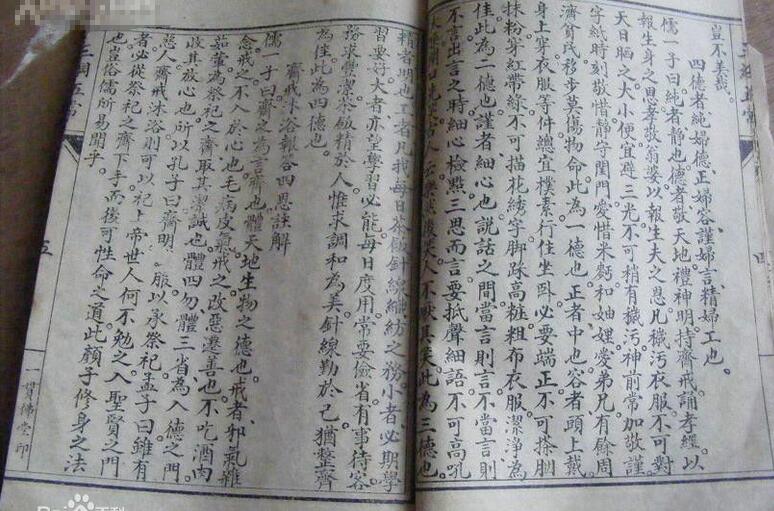 豈不美哉
四德者純婦德正婦容謹婦言精婦工也
儒一子曰純者靜也德者敬天地禮神明持齋戒誦孝經以
報生身之恩孝敬翁婆以報生夫之恩凡穢污衣服不可對
天日晒之大小便宜避三光不可稍有穢污神前常加敬謹
字紙時刻敬惜靜守閨門愛惜米麪和妯娌愛弟兄有餘周
濟貧民移步莫傷物命此為一德也正者中也容者頭上戴
身上穿衣服等件總宜樸素行住坐臥必要端正不可搽胭
抹粉穿紅帶綠不可描花綉字脚踩高粧粗布衣服潔淨為
佳此為二德也謹者細心也說話之間當言則言不當言則
不言出言之時細心檢點三思而言要抵聲細語不可高吼
人不厭其笑此為三德也
精者明也工者凡我每日茶飯針線織紡之務小者必期學
習要好大者亦至學習必能每日度用常要儉省有事待客
務求豐潔茶飯精於人惟求調和為美針線勤於己猶整齊
為佳此為四德也
齋戒沐浴報答四恩註解
儒一子曰齋之為言齊也體天地生物之德也戒者邪氣雜
念戒之不入於心也毛病皮氣戒之改惡遷善也不吃酒肉
茹葷為祭祀之齋取其潔誠也體四勿體三省為入德之門
收其放心也所以孔子曰齋明 服以承祭祀孟子曰雖有
惡人齋戒沐浴則可以祀上帝世人何不勉之入聖賢之門
者必從祭祀之齋下手而後可性命之道此顏子修身之法
也豈俗儒所易聞乎
三綱五常
五
一貫佛堂印
四
Bai 百科